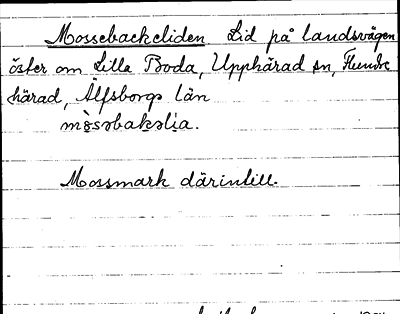 Mossebackeliden Lid på landsvägen
öster om Lilla Boda, Upphärad sn, Flundre
härad, Älfsborgs län
Mossmark därintill.